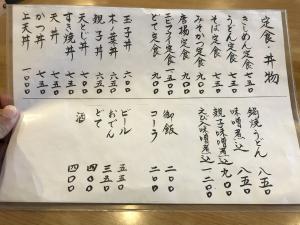 定食・丼物
きしめん定食 七五〇
うどん定食 七五〇
そば定食 七五〇
みそかつ定食 九〇〇
唐揚定食 九〇〇
定食 九〇〇
どて定食 九〇〇
玉子丼 六〇〇
木の葉丼 六五〇
親子丼 六五〇
天とじ丼 七五〇
すき焼丼 七五〇
天丼 七五〇
かつ丼 七五〇
上天丼 一〇〇〇
鍋焼うどん 八五〇
味噌煮込 八五〇
親子味噌煮込 九〇〇
えび入味噌煮込 一二〇〇
御飯 二〇〇
コーラ 二〇〇
ビール 五五〇
おでん 三五〇
どて 四〇〇
酒 四〇〇